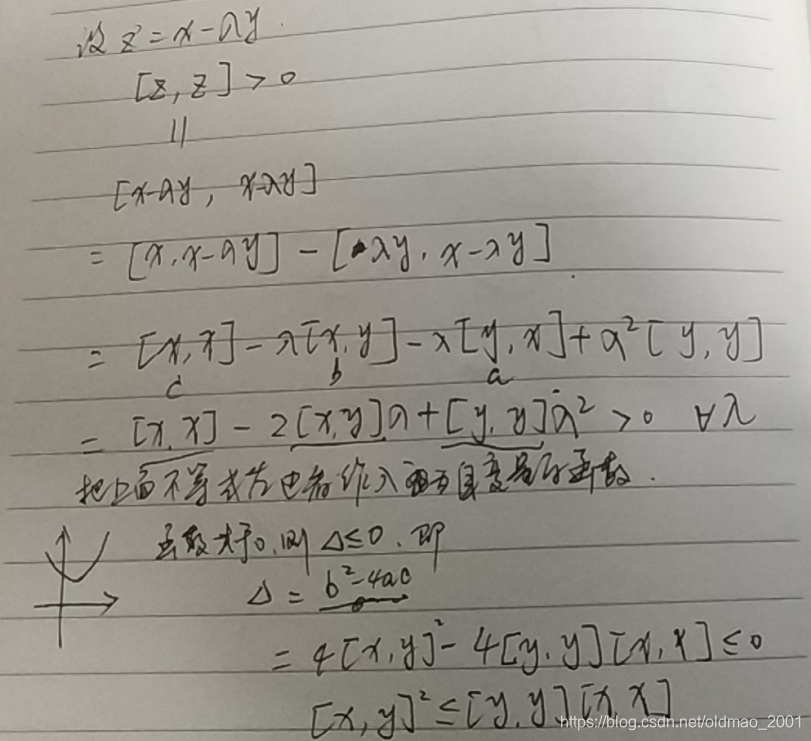 设 z = x - λy.
[z, z] > 0
||
[x-λy, x-λy]
= [x, x-λy] - [λy, x-λy]
= [x, x] - λ[x, y] - λ[y, x] + λ² [y, y]
c b a
= [x, x] - 2[x, y]λ + [y, y]λ² > 0 ∀λ
把上面不等式左边看作入为自变量的函数.
函数大于0, 则 Δ≤0, 即
Δ = b²-4ac
= 4[x, y]² - 4[y, y][x, x] ≤ 0
[x, y]² ≤ [y, y][x, x]
https://blog.csdn.net/oldmao_2001